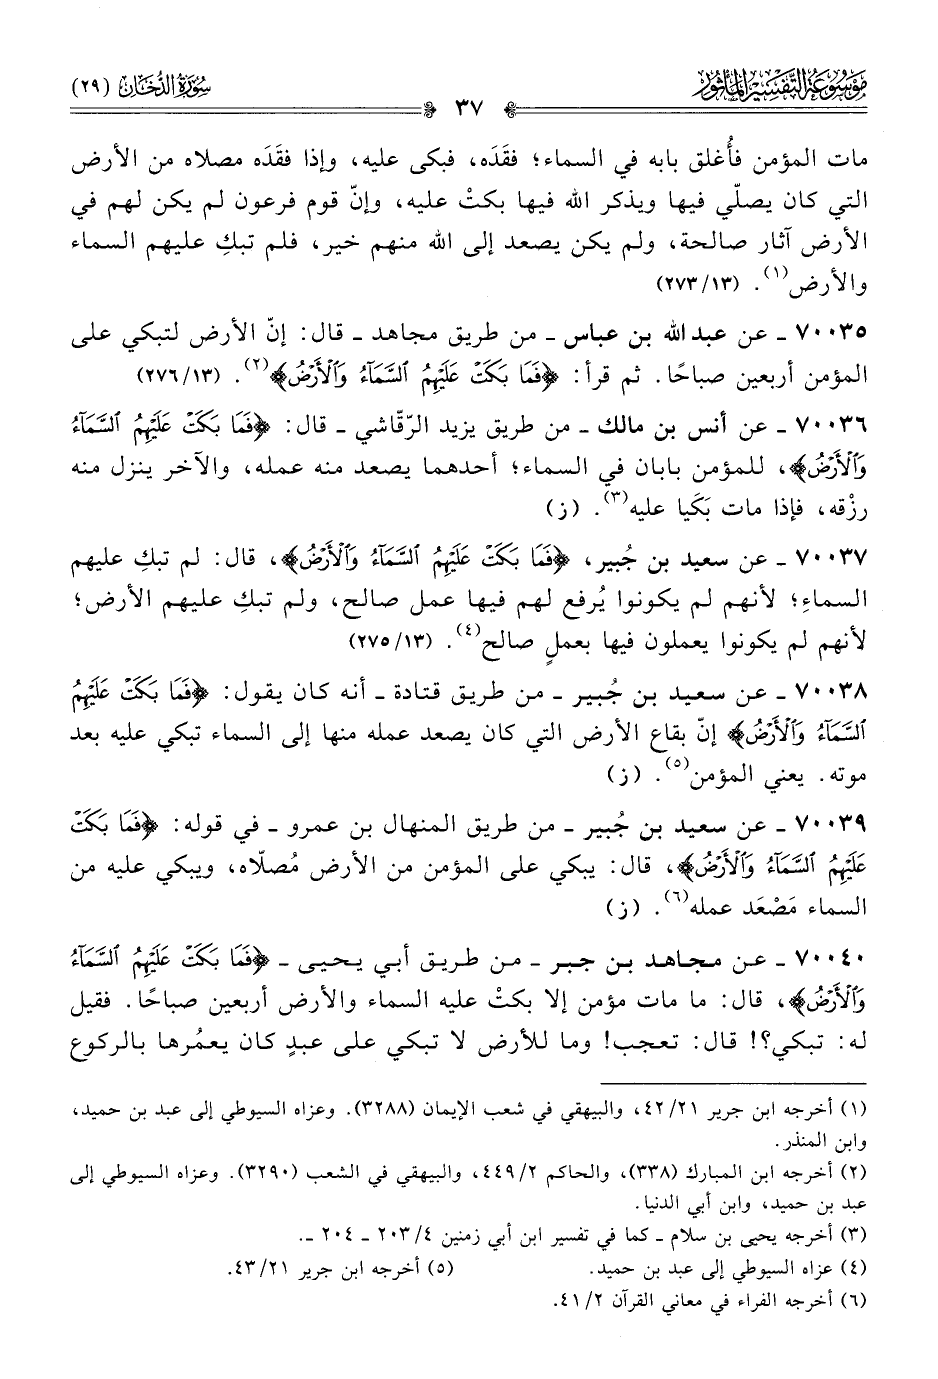 مَوْسُوعَةُ التَّفْسِيرِ المَأْثُور
٣٧
سُورَةُ الدُّخَان (٢٩)
مات المؤمن فأُغلق بابه في السماء؛ فقَدَه، فبكى عليه، وإذا فقَدَه مصلاه من الأرض
التي كان يصلّي فيها ويذكر الله فيها بكتْ عليه، وإنّ قوم فرعون لم يكن لهم في
الأرض آثار صالحة، ولم يكن يصعد إلى الله منهم خير، فلم تبكِ عليهم السماء
والأرض(١). (١٣/ ٢٧٣)
٧٠٠٣٥ ـ عن عبد الله بن عباس ـ من طريق مجاهد ـ قال: إنّ الأرض لتبكي على
المؤمن أربعين صباحًا. ثم قرأ: ﴿فَمَا بَكَتْ عَلَيْهِمُ ٱلسَّمَآءُ وَٱلْأَرْضُ﴾(٢). (١٣/ ٢٧٦)
٧٠٠٣٦ ـ عن أنس بن مالك ـ من طريق يزيد الرّقّاشي ـ قال: ﴿فَمَا بَكَتْ عَلَيْهِمُ ٱلسَّمَآءُ
وَٱلْأَرْضُ﴾، للمؤمن بابان في السماء؛ أحدهما يصعد منه عمله، والآخر ينزل منه
رزْقه، فإذا مات بَكَيا عليه(٣). (ز)
٧٠٠٣٧ ـ عن سعيد بن جُبير، ﴿فَمَا بَكَتْ عَلَيْهِمُ ٱلسَّمَآءُ وَٱلْأَرْضُ﴾، قال: لم تبكِ عليهم
السماءِ؛ لأنهم لم يكونوا يُرفع لهم فيها عمل صالح، ولم تبكِ عليهم الأرض؛
لأنهم لم يكونوا يعملون فيها بعملٍ صالح(٤). (١٣/ ٢٧٥)
٧٠٠٣٨ ـ عن سعيد بن جُبير ـ من طريق قتادة ـ أنه كان يقول: ﴿فَمَا بَكَتْ عَلَيْهِمُ
ٱلسَّمَآءُ وَٱلْأَرْضُ﴾ إنّ بقاع الأرض التي كان يصعد عمله منها إلى السماء تبكي عليه بعد
موته. يعني المؤمن(٥). (ز)
٧٠٠٣٩ ـ عن سعيد بن جُبير ـ من طريق المنهال بن عمرو ـ في قوله: ﴿فَمَا بَكَتْ
عَلَيْهِمُ ٱلسَّمَآءُ وَٱلْأَرْضُ﴾، قال: يبكي على المؤمن من الأرض مُصلّاه، ويبكي عليه من
السماء مَصْعَد عمله(٦). (ز)
٧٠٠٤٠ ـ عن مجاهد بن جبر ـ من طريق أبي يحيى ـ ﴿فَمَا بَكَتْ عَلَيْهِمُ ٱلسَّمَآءُ
وَٱلْأَرْضُ﴾، قال: ما مات مؤمن إلا بكتْ عليه السماء والأرض أربعين صباحًا. فقيل
له: تبكي؟! قال: تعجب! وما للأرض لا تبكي على عبدٍ كان يعمُرها بالركوع
(١) أخرجه ابن جرير ٢١/ ٤٢، والبيهقي في شعب الإيمان (٣٢٨٨). وعزاه السيوطي إلى عبد بن حميد،
وابن المنذر.
(٢) أخرجه ابن المبارك (٣٣٨)، والحاكم ٢/ ٤٤٩، والبيهقي في الشعب (٣٢٩٠). وعزاه السيوطي إلى
عبد بن حميد، وابن أبي الدنيا.
(٣) أخرجه يحيى بن سلام ـ كما في تفسير ابن أبي زمنين ٤/ ٢٠٣ ـ ٢٠٤ ـ.
(٤) عزاه السيوطي إلى عبد بن حميد. (٥) أخرجه ابن جرير ٢١/ ٤٣.
(٦) أخرجه الفراء في معاني القرآن ٢/ ٤١.